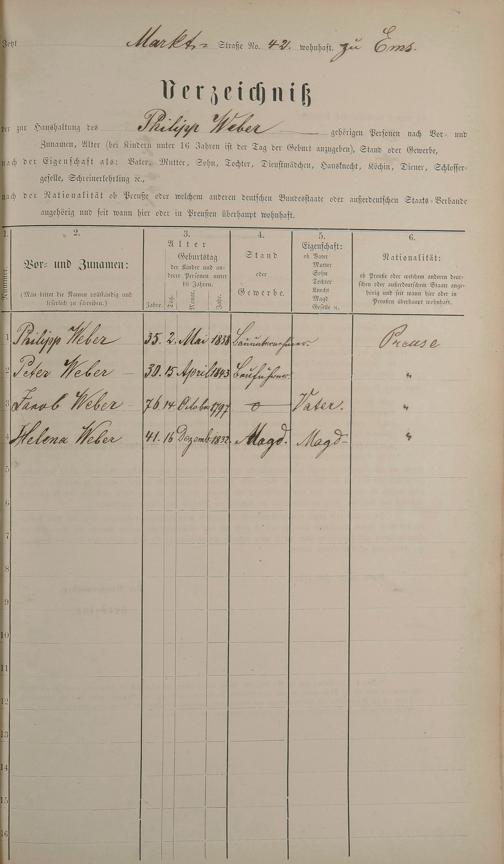 Jetzt Markt= Straße No. 42. wohnhaft. zu Ems.
Verzeichniß
der zur Haushaltung des Philipp Weber gehörigen Personen nach Vor- und
Zunamen, Alter (bei Kindern unter 16 Jahren ist der Tag der Geburt anzugeben), Stand oder Gewerbe,
nach der Eigenschaft als: Vater, Mutter, Sohn, Tochter, Dienstmädchen, Hausknecht, Köchin, Diener, Schlosser-
geselle, Schreinerlehrling ꝛc.,
nach der Nationalität ob Preuße oder welchem anderen deutschen Bundesstaate oder außerdeutschen Staats-Verbande
angehörig und seit wann hier oder in Preußen überhaupt wohnhaft.
1. 2. 3. 4. 5. 6.
Nummer.
Vor- und Zunamen:
(Man bittet die Namen vollständig und
leserlich zu schreiben.)
Alter
Geburtstag
der Kinder und an-
deren Personen unter
16 Jahren.
Jahre. Tag. Monat. Jahr.
Stand
oder
Gewerbe.
Eigenschaft:
ob Vater
Mutter
Sohn
Tochter
Knecht
Magd
Geselle ꝛc.
Nationalität:
ob Preuße oder welchem anderen deut-
schen oder außerdeutschen Staate ange-
hörig und seit wann hier oder in
Preußen überhaupt wohnhaft.
1 Philipp Weber 35. 2. Mai 1838 Bauunternehmer. Preuse
2 Peter Weber – 30. 15 April 1843 Bauführer. "
3 Jacob Weber – 76 14 October 1797 o Vater. "
4 Helena Weber 41. 16 Dezemb 1832. Magd. Magd– "
5
6
7
8
9
10
11
12
13
14
15
16